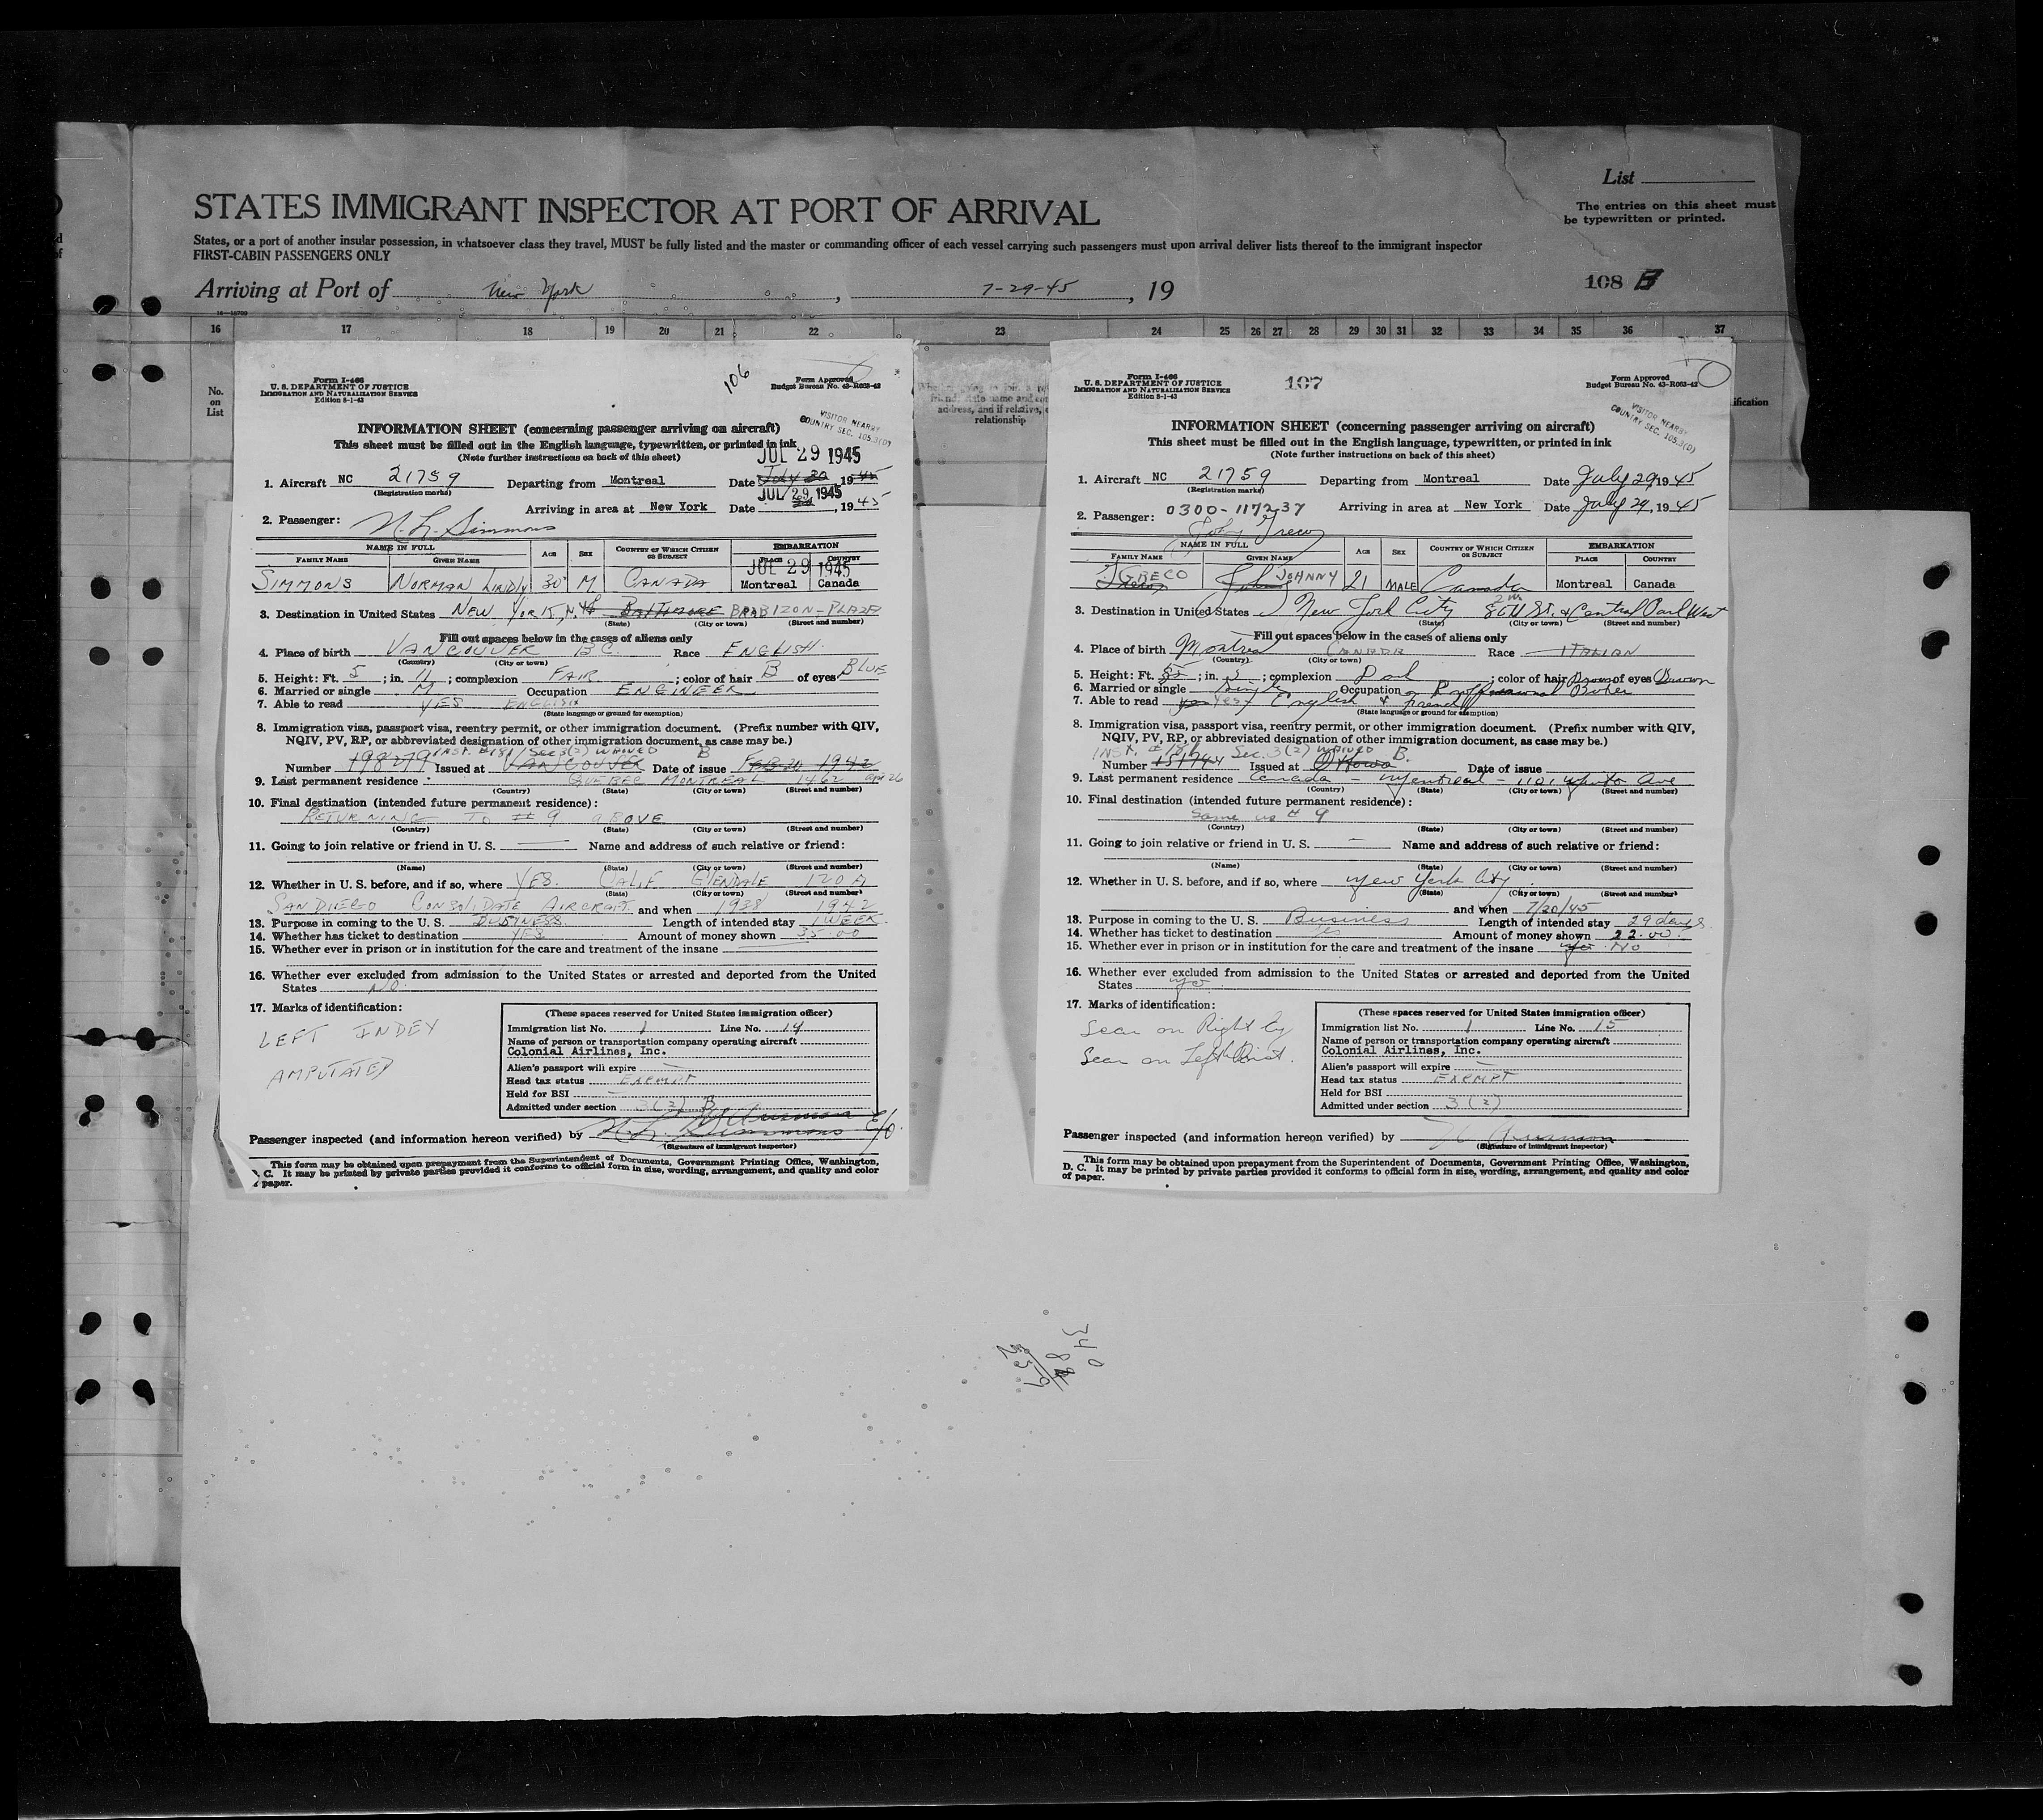 List
STATES IMMIGRANT INSPECTOR AT PORT OF ARRIVAL
The entries on this sheet must
be typewritten or printed.
States, or a port of another insular possession, in whatsoever class they travel, MUST be fully listed and the master or commanding officer of each vessel carrying such passengers must upon arrival deliver lists thereof to the immigrant inspector
FIRST-CABIN PASSENGERS ONLY
Arriving at Port of New York, 7-29-45, 19
108 B
16 17 18 19 20 21 22 23 24 25 26 27 28 29 30 31 32 33 34 35 36 37
No.
on
List
address, and if relative,
relationship
106
Form I-466
U. S. DEPARTMENT OF JUSTICE
IMMIGRATION AND NATURALIZATION SERVICE
Edition 5-1-43
Form Approved
Budget Bureau No. 43-R063-42
VISITOR NEARBY
COUNTRY SEC. 105.3(D)
INFORMATION SHEET (concerning passenger arriving on aircraft)
This sheet must be filled out in the English language, typewritten, or printed in ink
(Note further instructions on back of this sheet)
JUL 29 1945
1. Aircraft NC 21759 Departing from Montreal Date July 1945
(Registration marks)
JUL 29 1945
Arriving in area at New York Date , 1945
2. Passenger: N. L. Simmons
NAME IN FULL AGE SEX COUNTRY OF WHICH CITIZEN OR SUBJECT EMBARKATION
FAMILY NAME GIVEN NAME PLACE COUNTRY
JUL 29 1945
SIMMONS NORMAN LINDLY 30 M CANADA Montreal Canada
3. Destination in United States NEW YORK, N.Y. BALTIMORE BARBIZON-PLAZA
(State) (City or town) (Street and number)
Fill out spaces below in the cases of aliens only
4. Place of birth VANCOUVER B C. Race ENGLISH
(Country) (City or town)
5. Height: Ft. 5; in. 11; complexion FAIR; color of hair B of eyes BLUE
6. Married or single M Occupation ENGINEER
7. Able to read YES ENGLISH
(State language or ground for exemption)
8. Immigration visa, passport visa, reentry permit, or other immigration document. (Prefix number with QIV,
NQIV, PV, RP, or abbreviated designation of other immigration document, as case may be.)
INST. #181 Sec 3(2) WAIVED B
Number 198279 Issued at VANCOUVER Date of issue FEB 20 1942
9. Last permanent residence QUEBEC MONTREAL 1462
(Country) (State) (City or town) (Street and number)
10. Final destination (intended future permanent residence):
RETURNING TO # 9 ABOVE
(Country) (State) (City or town) (Street and number)
11. Going to join relative or friend in U. S. Name and address of such relative or friend:
(Name) (State) (City or town) (Street and number)
12. Whether in U. S. before, and if so, where YES. CALIF GLENDALE 120
(State) (City or town) (Street and number)
SAN DIEGO CONSOLIDATE AIRCRAFT and when 1938 1942
13. Purpose in coming to the U. S. BUSYNESS Length of intended stay 1 WEEK
14. Whether has ticket to destination YES Amount of money shown 35.00
15. Whether ever in prison or in institution for the care and treatment of the insane
16. Whether ever excluded from admission to the United States or arrested and deported from the United
States No.
17. Marks of identification:
LEFT INDEX
AMPUTATED
(These spaces reserved for United States immigration officer)
Immigration list No. 1 Line No. 14
Name of person or transportation company operating aircraft
Colonial Airlines, Inc.
Alien's passport will expire
Head tax status EXEMPT
Held for BSI
Admitted under section 3(2) B
Passenger inspected (and information hereon verified) by N. L. Simmons
(Signature of immigrant inspector)
This form may be obtained upon prepayment from the Superintendent of Documents, Government Printing Office, Washington,
D. C. It may be printed by private parties provided it conforms to official form in size, wording, arrangement, and quality and color
of paper.
107
Form I-466
U. S. DEPARTMENT OF JUSTICE
IMMIGRATION AND NATURALIZATION SERVICE
Edition 5-1-43
Form Approved
Budget Bureau No. 43-R063-42
VISITOR NEARBY
COUNTRY SEC. 105.3(D)
INFORMATION SHEET (concerning passenger arriving on aircraft)
This sheet must be filled out in the English language, typewritten, or printed in ink
(Note further instructions on back of this sheet)
1. Aircraft NC 21759 Departing from Montreal Date July 29, 1945
(Registration marks)
Arriving in area at New York Date July 29, 1945
2. Passenger: 0300-117237
Johny Greco
NAME IN FULL AGE SEX COUNTRY OF WHICH CITIZEN OR SUBJECT EMBARKATION
FAMILY NAME GIVEN NAME PLACE COUNTRY
GRECO JOHNNY 21 MALE Canada Montreal Canada
3. Destination in United States New York City 82nd St. & Central Park West
(State) (City or town) (Street and number)
Fill out spaces below in the cases of aliens only
4. Place of birth Montreal CANADA Race ITALIAN
(Country) (City or town)
5. Height: Ft. 5; in. 5; complexion Dark; color of hair Brown of eyes Brown
6. Married or single Single Occupation Proffessional Boxer
7. Able to read Yes English & French
(State language or ground for exemption)
8. Immigration visa, passport visa, reentry permit, or other immigration document. (Prefix number with QIV,
NQIV, PV, RP, or abbreviated designation of other immigration document, as case may be.)
INST. #181 Sec. 3(2) WAIVED B.
Number 151744 Issued at Ottawa Date of issue
9. Last permanent residence Canada - Montreal - Ave
(Country) (State) (City or town) (Street and number)
10. Final destination (intended future permanent residence):
Same as # 9
(Country) (State) (City or town) (Street and number)
11. Going to join relative or friend in U. S. — Name and address of such relative or friend:
(Name) (State) (City or town) (Street and number)
12. Whether in U. S. before, and if so, where New York City
(State) (City or town) (Street and number)
and when 7/20/45
13. Purpose in coming to the U. S. Business Length of intended stay 29 days
14. Whether has ticket to destination Yes Amount of money shown 22.00
15. Whether ever in prison or in institution for the care and treatment of the insane No
16. Whether ever excluded from admission to the United States or arrested and deported from the United
States No
17. Marks of identification:
Scar on Right
Scar on Left
(These spaces reserved for United States immigration officer)
Immigration list No. 1 Line No. 15
Name of person or transportation company operating aircraft
Colonial Airlines, Inc.
Alien's passport will expire
Head tax status EXEMPT
Held for BSI
Admitted under section 3(2)
Passenger inspected (and information hereon verified) by
(Signature of immigrant inspector)
This form may be obtained upon prepayment from the Superintendent of Documents, Government Printing Office, Washington,
D. C. It may be printed by private parties provided it conforms to official form in size, wording, arrangement, and quality and color
of paper.